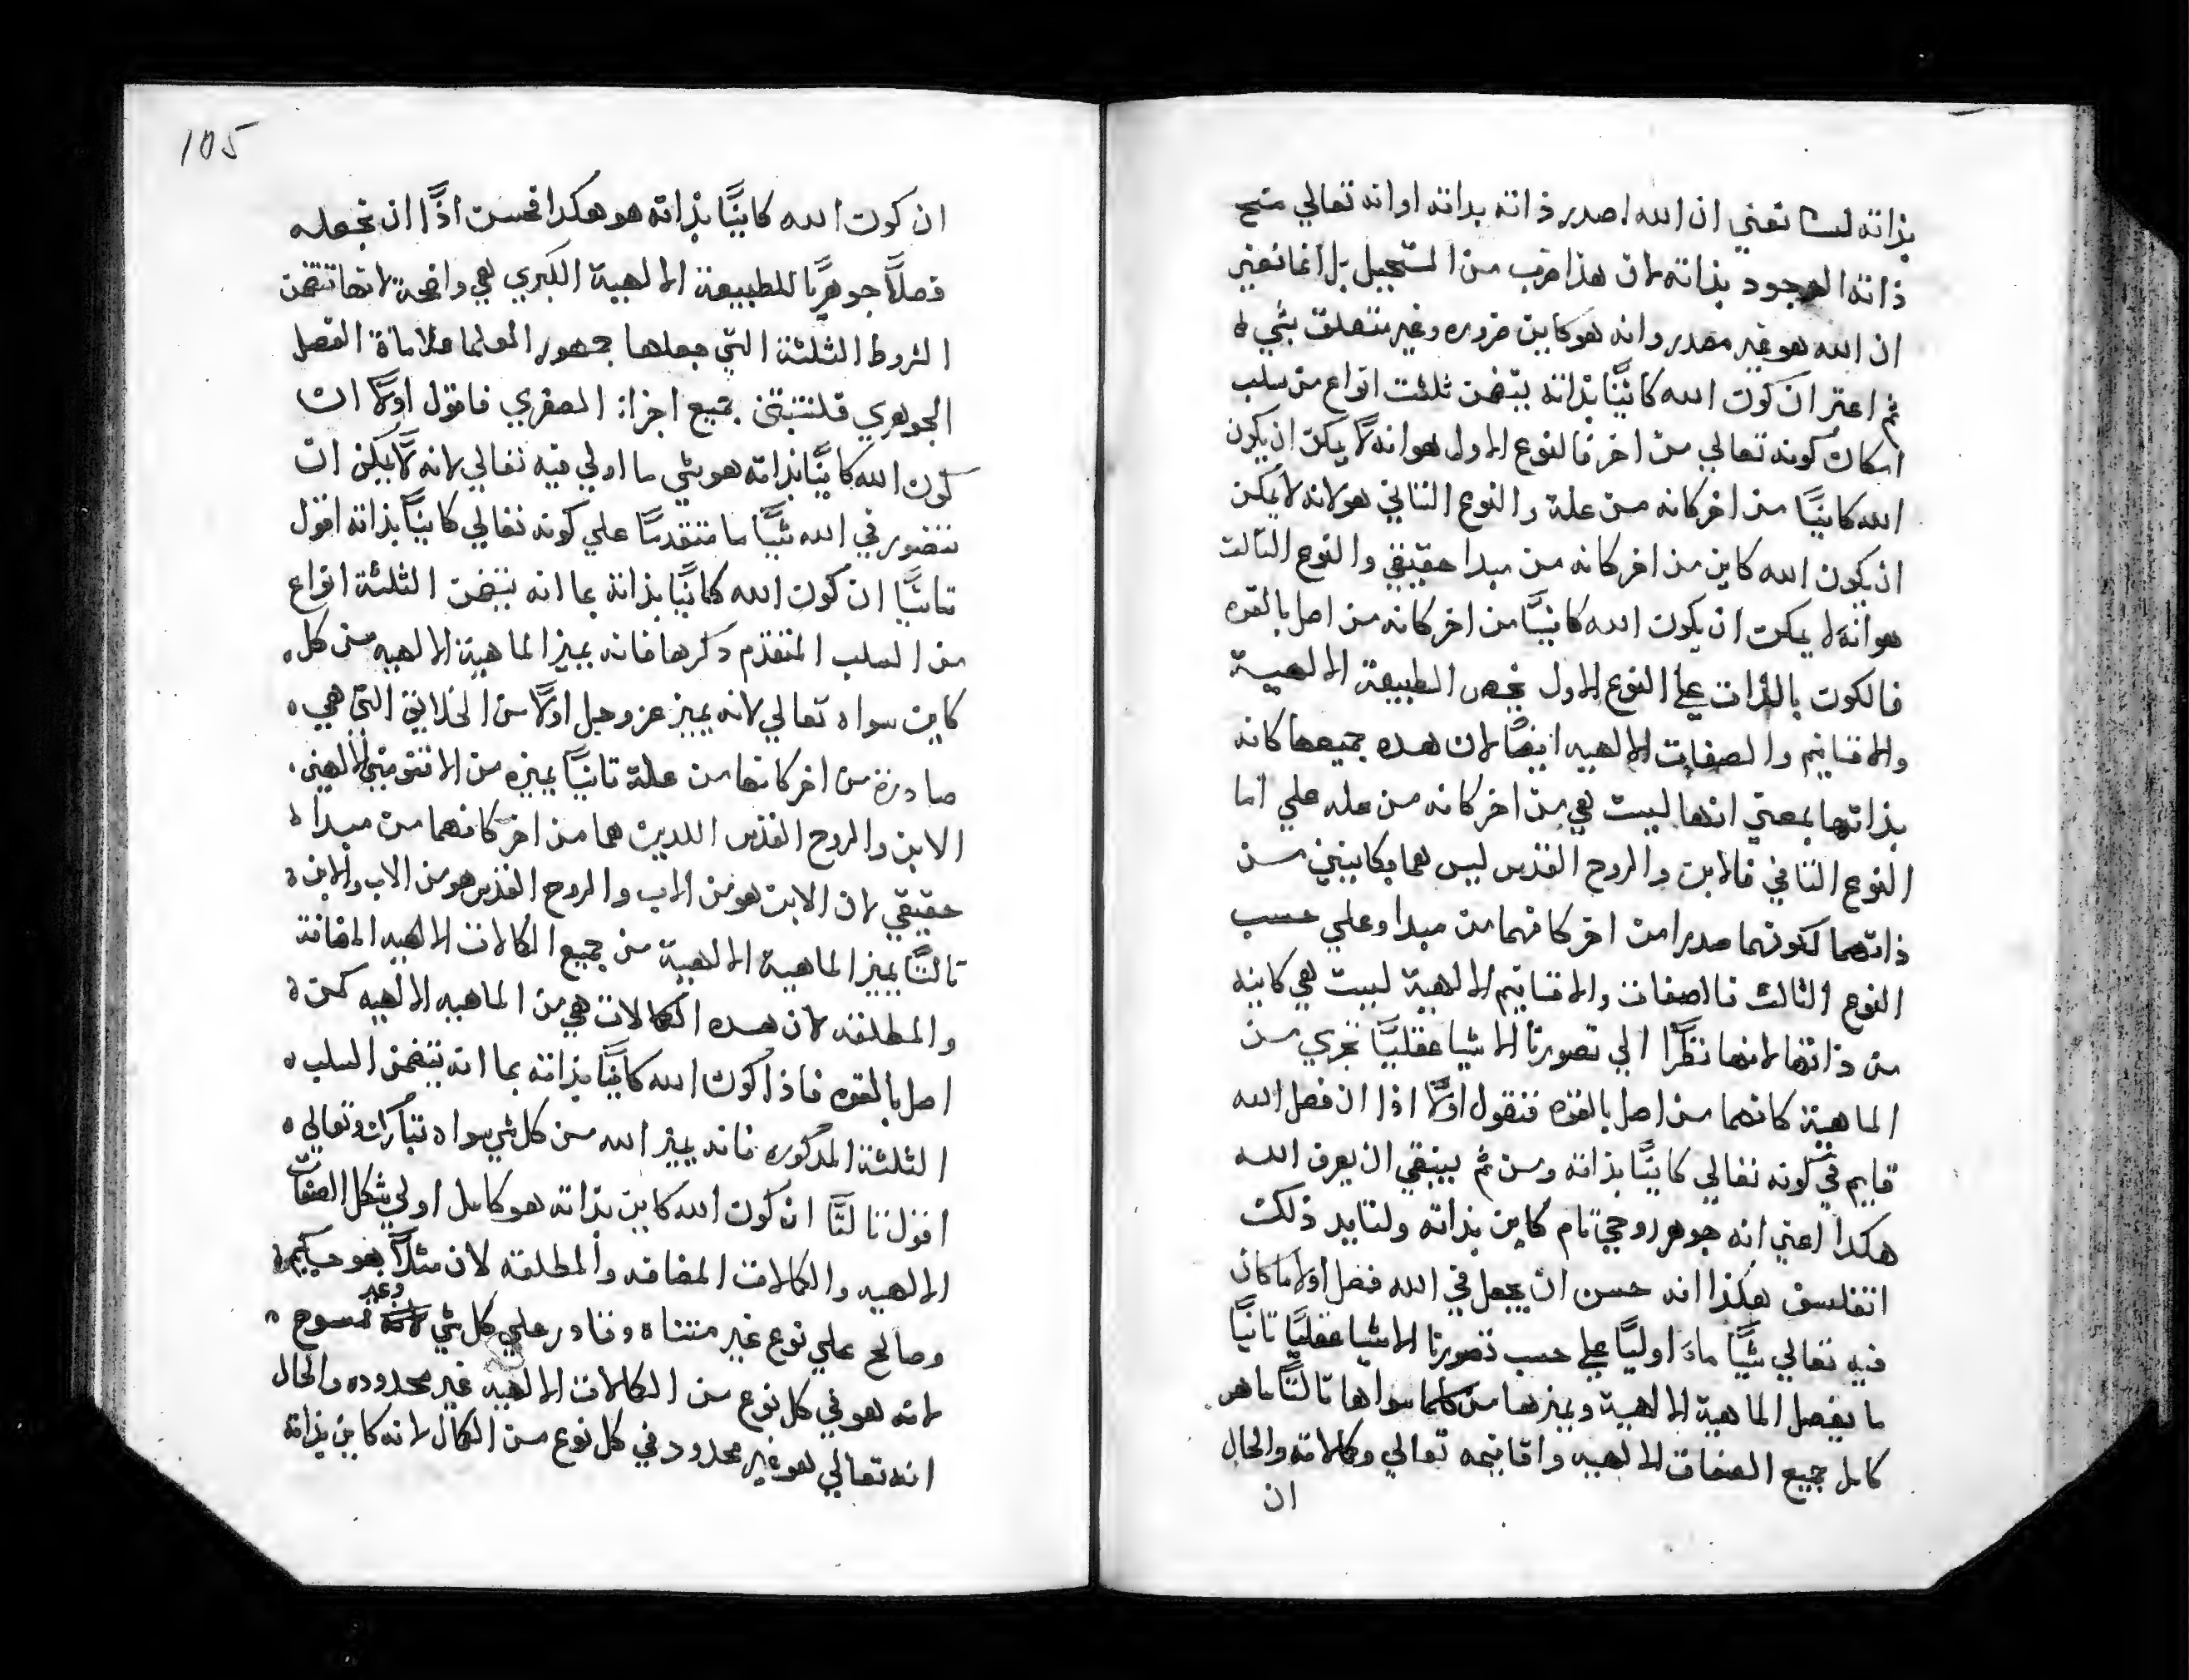 بذاته لسنا نعني ان الله اصدر ذاته بذاته او انه تعالي منح
ذاته الوجود بذاته لان هذا ضرب من المستحيل بل انما نعني
ان الله هو غير مصدر وانه هو كاين ضروره وغير متعلق بشي ه
ثم اعتبر ان كون الله كاينًا بذاته يتضمن ثلثت انواع من سلب
امكان كونه تعالي من اخر فالنوع الاول هو انه لا يمكن ان يكون
الله كاينًا من اخر كانه من علة والنوع الثاني هو لانه لا يمكن
ان يكون الله كاين من اخر كانه من مبدا حقيقي والنوع الثالث
هو انه لا يمكن ان يكون الله كاينًا من اخر كانه من اصل بالقوه
فالكون بالذات علي النوع الاول يخص الطبيعة الالهية
والاقانيم والصفات الالهيه ايضًا لان هذه جميعها كانه
بذاتها بمعني انها ليست هي من اخر كانه من عله علي اما
النوع الثاني فالابن والروح القدس ليس هما بكاينين من
ذاتهما لكونهما صدرا من اخر كانهما من مبدا وعلي حسب
النوع الثالث فالصفات والاقانيم الالهية ليست هي كاينه
من ذاتها لانها نظرًا الي تصورنا الاشيا عقليًا تجري من
الماهية كانهما من اصل بالقوه فنقول اولًا اذا ان فصل الله
قايم في كونه تعالي كاينًا بذاته ومن ثم ينبغي ان يعرف الله
هكذا اعني انه جوهر روحي تام كاين بذاته ولتايد ذلك
اتفلسف هكذا انه حسن ان يجعل في الله فصل اولا ما كان
فيه تعالي شيًا ما اوليًا علي حسب تصورنا الاشيا عقليًا ثانيًا
ما يفصل الماهية الالهية ويميزها من كلما سواها ثالثًا ما هو
كامل جميع الصفات الالهيه واقانيمه تعالي وكمالاته والحال
ان
105
ان كون الله كاينًا بذاته هو هكذا فحسن اذًا ان نجعله
فصلًا جوهريًا للطبيعة الالهية الكبري هي واضحة لانها تتضمن
الشروط الثلثة التي جعلها جمهور العلما علامة الفصل
الجوهري فلنثبتن جميع اجزاء الصغري فاقول اولًا ان
كون الله كاينًا بذاته هو شي ما اولي فيه تعالي لانه لا يمكن ان
نتصور في الله شيًا ما متقدمًا علي كونه تعالي كاينًا بذاته اقول
ثانيًا ان كون الله كاينًا بذاته بما انه يتضمن الثلثة انواع
من السلب المتقدم ذكرها فانه يميز الماهية الالهيه من كل
كاين سواه تعالي لانه يميز عز وجل اولًا من الخلايق التي هي
صادرة من اخر كانها من علة ثانيًا يميزه من الاقنومين الالهين
الابن والروح القدس اللذين هما من اخر كانهما من مبدا
حقيقي لان الابن هو من الاب والروح القدس هو من الاب والابن
ثالثًا يميز الماهية الالهية من جميع الكمالات الالهيه المضافة
والمطلقه لان هذه الكمالات هي من الماهيه الالهيه كمن
اصل بالقوه فاذًا كون الله كاينًا بذاته بما انه يتضمن السلب
الثلثة المذكوره فانه يميز الله من كل شي سواه تبارك وتعالي
اقول ثالثًا ان كون الله كاين بذاته هو كامل اولي بشكل الصفات
الالهيه والكمالات المضافه والمطلقه لان مثلًا هو حكيم
وصالح علي نوع غير متناه وقادر علي كل شي وغير ممسوح
لانه هو في كل نوع من الكمالات الالهيه غير محدوده والحال
انه تعالي هو غير محدود في كل نوع من الكمال لانه كاين بذاته